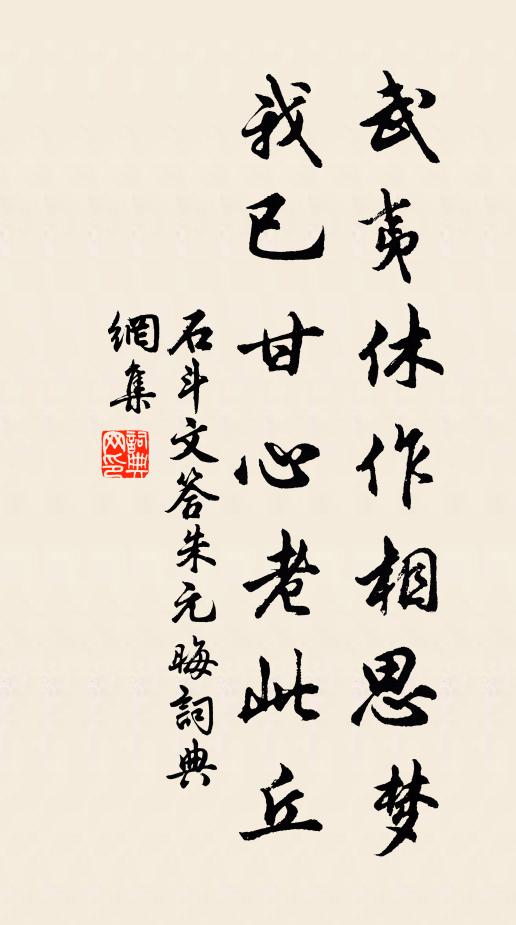 武夷休作相思梦
我已甘心老此丘
石斗文答朱元晦詞典
網集
詞典
网印